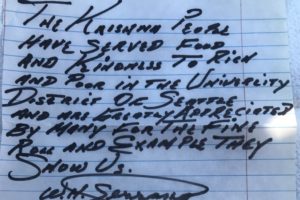 The Krishna People
Have Served Food
and Kindness to Rich
and Poor in the University
District of Seattle
and are greatly appreciated
by many for the fine
Role and Example they
Show Us.
W.H.